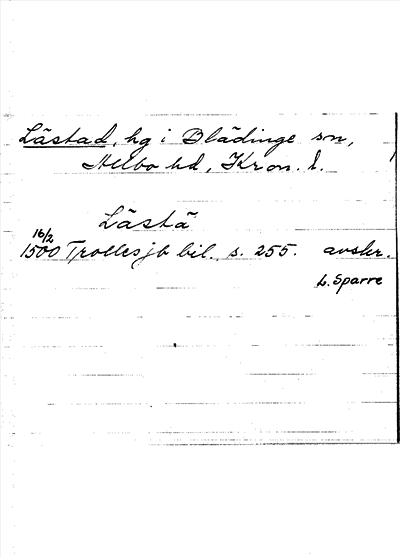 Lästad, hg i Blädinge sn,
Allbo hd, Kron. l.
Lästä
16/2
1500 Trolles jb bil. s. 255. avskr.
L. Sparre